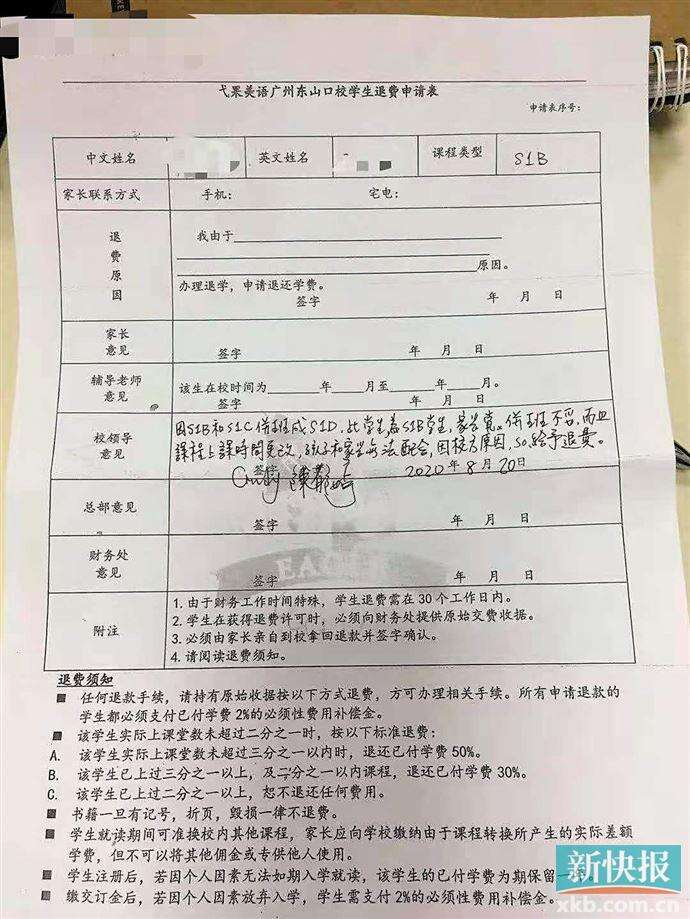 弋果美语广州东山口校学生退费申请表
申请表序号:
中文姓名 英文姓名 课程类型 S1B
家长联系方式 手机: 宅电:
退费原因
我由于
原因。
办理退学,申请退还学费。
签字 年 月 日
家长意见
签字 年 月 日
辅导老师意见
该生在校时间为 年 月至 年 月。
签字 年 月 日
校领导意见
因S1B和S1C併班成S1D,此学生為S1B学生,家长覺 併班不妥,而且
課程上課時間更改,孩子和家长無法配合,因校方原因,so給予退費。
签字 2020年8月20日
总部意见
签字 年 月 日
财务处意见
签字 年 月 日
EAGLE
附注
1. 由于财务工作时间特殊,学生退费需在30个工作日内。
2. 学生在获得退费许可时,必须向财务处提供原始交费收据。
3. 必须由家长亲自到校拿回退款并签字确认。
4. 请阅读退费须知。
退费须知
■ 任何退款手续,请持有原始收据按以下方式退费,方可办理相关手续。所有申请退款的
学生都必须支付已付学费2%的必须性费用补偿金。
■ 该学生实际上课堂数未超过二分之一时,按以下标准退费:
A. 该学生实际上课堂数未超过三分之一以内时,退还已付学费50%。
B. 该学生已上过三分之一以上,及二分之一以内课程,退还已付学费30%。
C. 该学生已上过二分之一以上,恕不退还任何费用。
■ 书籍一旦有记号,折页,毁损一律不退费。
■ 学生就读期间可准换校内其他课程,家长应向学校缴纳由于课程转换所产生的实际差额
学费,但不可以将其他佣金或专供他人使用。
■ 学生注册后,若因个人因素无法如期入学就读,该学生的已付学费为期保留一
■ 缴交订金后,若因个人因素放弃入学,学生需支付2%的必须性费用补偿金。
新快报
xkb.com.cn